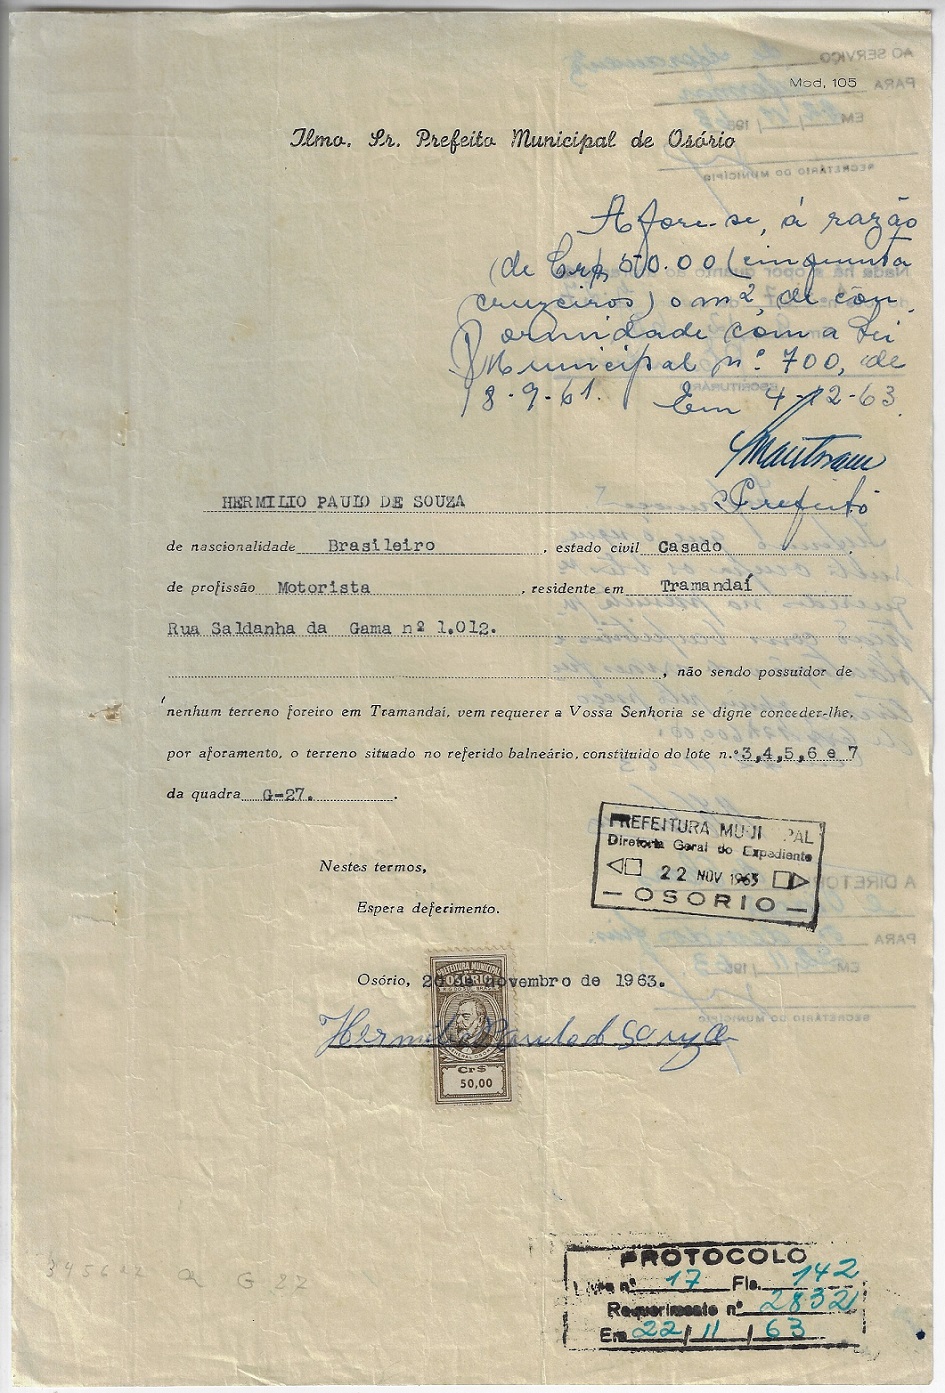 Mod. 105
Ilmo. Sr. Prefeito Municipal de Osório
Afore-se, á razão
de Cr$ 50.00 (cinquenta
cruzeiros) o m2, de con
formidade com a Lei
Municipal nº 700, de
8-9-61. Em 4-12-63.
Prefeito
HERMILIO PAULO DE SOUZA
de nascionalidade Brasileiro, estado civil Casado
de profissão Motorista, residente em Tramandaí
Rua Saldanha da Gama nº 1.012.
, não sendo possuidor de
nenhum terreno foreiro em Tramandaí, vem requerer a Vossa Senhoria se digne conceder-lhe,
por aforamento, o terreno situado no referido balneário, constituido do lote n.º 3,4,5,6 e 7
da quadra G-27.
PREFEITURA MUNICIPAL
Diretoria Geral do Expediente
22 NOV 1963
— OSORIO —
Nestes termos,
Espera deferimento.
Osório, 20 de Novembro de 1963.
PREFEITURA MUNICIPAL
OSÓRIO
Hermilio Paulo d Souza
Cr$
50,00
G 27
PROTOCOLO
Livro nº 17 Fls. 142
Requerimento nº 2832
Em 22/11/63